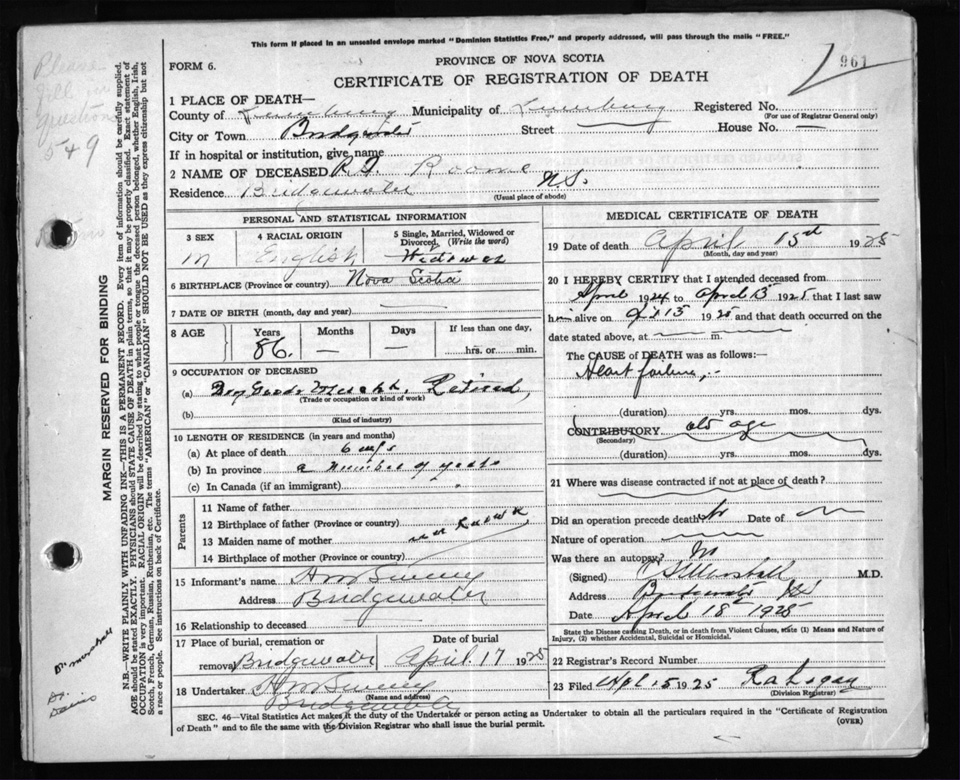 This form if placed in an unsealed envelope marked "Dominion Statistics Free," and properly addressed, will pass through the mails "FREE."
FORM 6.
PROVINCE OF NOVA SCOTIA
961
CERTIFICATE OF REGISTRATION OF DEATH
Please
fill in
question
5 & 9
1 PLACE OF DEATH—
County of Lunenburg Municipality of Lunenburg Registered No.
(For use of Registrar General only)
City or Town Bridgewater Street House No. —
If in hospital or institution, give name
2 NAME OF DECEASED Roome
Residence Bridgewater N.S.
(Usual place of abode)
PERSONAL AND STATISTICAL INFORMATION
3 SEX
M
4 RACIAL ORIGIN
English
5 Single, Married, Widowed or Divorced, (Write the word)
Widower
6 BIRTHPLACE (Province or country) Nova Scotia
7 DATE OF BIRTH (month, day and year)
8 AGE
Years Months Days If less than one day,
86. — — hrs. or min.
9 OCCUPATION OF DECEASED
(a) Dry Goods Retired,
(Trade or occupation or kind of work)
(b)
(Kind of industry)
10 LENGTH OF RESIDENCE (in years and months)
(a) At place of death 6
(b) In province a number of years
(c) In Canada (if an immigrant)
Parents
11 Name of father
12 Birthplace of father (Province or country)
13 Maiden name of mother
14 Birthplace of mother (Province or country)
15 Informant's name
Address Bridgewater
16 Relationship to deceased
17 Place of burial, cremation or Date of burial
removal Bridgewater April 17 1925
18 Undertaker
(Name and address)
Bridgewater
MEDICAL CERTIFICATE OF DEATH
19 Date of death April 15 1925
(Month, day and year)
20 I HEREBY CERTIFY that I attended deceased from
April 1924 to April 15 1925 that I last saw
him alive on 15 1925 and that death occurred on the
date stated above, at m.
The CAUSE OF DEATH was as follows:—
Heart failure,
(duration) yrs. mos. dys.
CONTRIBUTORY old age
(Secondary)
(duration) yrs. mos. dys.
21 Where was disease contracted if not at place of death?
Did an operation precede death No Date of
Nature of operation
Was there an autopsy? No
(Signed) Marshall M.D.
Address Bridgewater NS
Date April 18 1925
State the Disease causing Death, or in death from Violent Causes, state (1) Means and Nature of
Injury, (2) whether Accidental, Suicidal or Homicidal.
22 Registrar's Record Number
23 Filed Apl 15 1925
(Division Registrar)
SEC. 46—Vital Statistics Act makes it the duty of the Undertaker or person acting as Undertaker to obtain all the particulars required in the "Certificate of Registration
of Death" and to file the same with the Division Registrar who shall issue the burial permit.
(OVER)
MARGIN RESERVED FOR BINDING
N.B.—WRITE PLAINLY WITH UNFADING INK—THIS IS A PERMANENT RECORD. Every item of information should be carefully supplied.
AGE should be stated EXACTLY. PHYSICIANS should STATE CAUSE OF DEATH in plain terms, so that it may be properly classified. Exact statement of
OCCUPATION is very important. RACIAL ORIGIN will be described by stating to what people or tongue the deceased person belonged, whether English, Irish,
Scotch, French, German, Russian, Ruthenian, etc. The terms "AMERICAN" or "CANADIAN" SHOULD NOT BE USED as they express citizenship but not
a race or people. See instructions on back of Certificate.
Dr. Marshall
Dr.
Davis